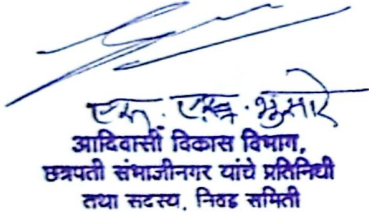 एस. एस. भुसारे
आदिवासी विकास विभाग,
छत्रपती संभाजीनगर यांचे प्रतिनिधी
तथा सदस्य, निवड समिती